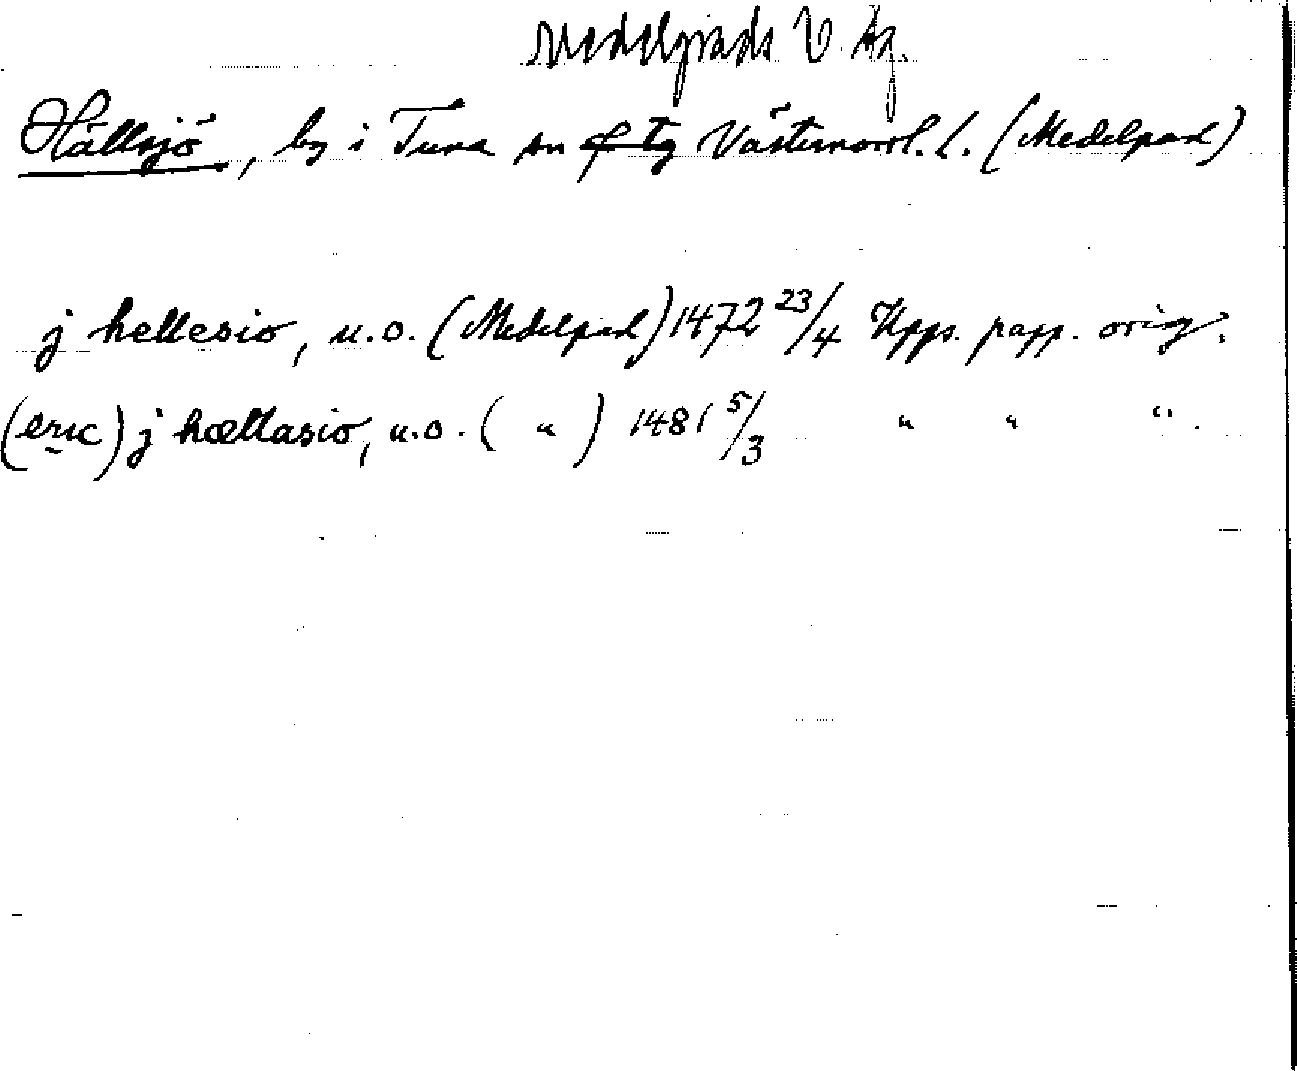 Medelpads V tg.
Hällsjö, by i Tuna sn Västernorrl. l. (Medelpad)
j hellesio, u.o. (Medelpad) 1472 23/4 Upps. papp. orig.
(eric) j hællasio, u.o. ( " ) 1481 5/3 " " ".